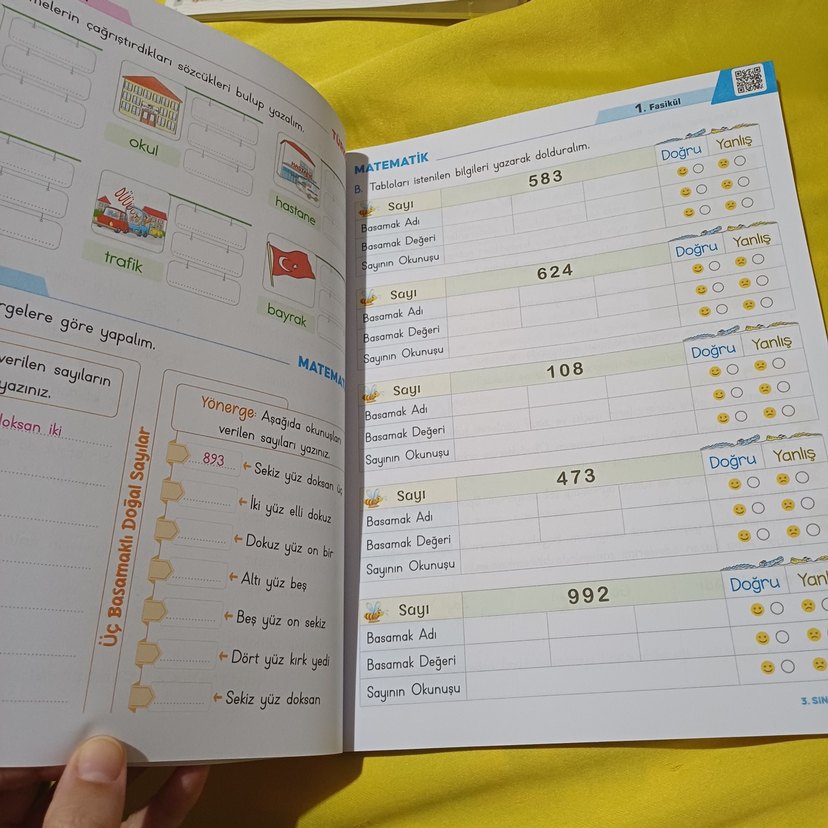 melerin çağrıştırdıkları sözcükleri bulup yazalım.
okul
hastane
trafik
bayrak
göre yapalım.
verilen sayıların
yazınız.
doksan iki
Üç Basamaklı Doğal Sayılar
Yönerge: Aşağıda okunuşları
verilen sayıları yazınız.
893 ← Sekiz yüz doksan üç
← İki yüz elli dokuz
← Dokuz yüz on bir
← Altı yüz beş
← Beş yüz on sekiz
← Dört yüz kırk yedi
← Sekiz yüz doksan
1. Fasikül
MATEMATİK
B. Tabloları istenilen bilgileri yazarak dolduralım.
Sayı 583 Doğru Yanlış
Basamak Adı
Basamak Değeri
Sayının Okunuşu
Sayı 624 Doğru Yanlış
Basamak Adı
Basamak Değeri
Sayının Okunuşu
Sayı 108 Doğru Yanlış
Basamak Adı
Basamak Değeri
Sayının Okunuşu
Sayı 473 Doğru Yanlış
Basamak Adı
Basamak Değeri
Sayının Okunuşu
Sayı 992 Doğru
Basamak Adı
Basamak Değeri
Sayının Okunuşu